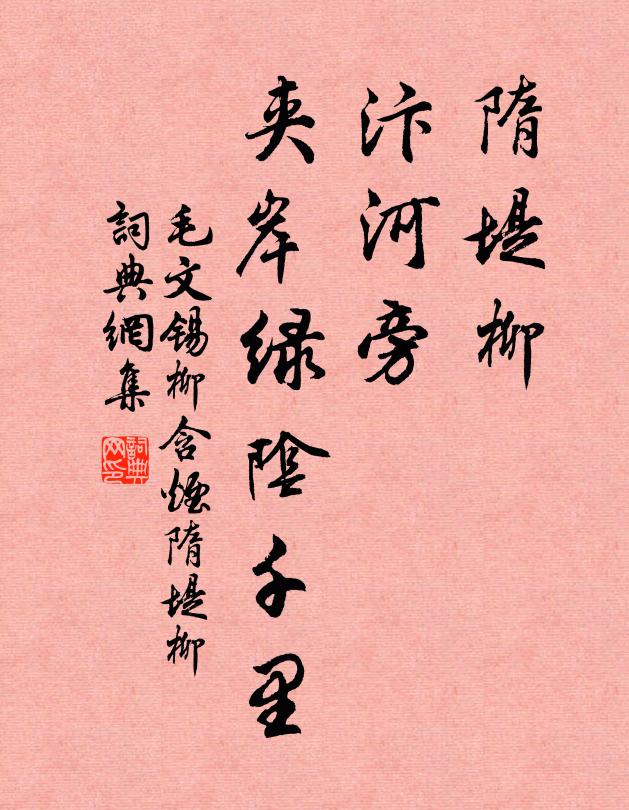 隋堤柳
汴河旁
夹岸绿陰千里
毛文锡柳含煙隋堤柳
詞典網集
詞典网印